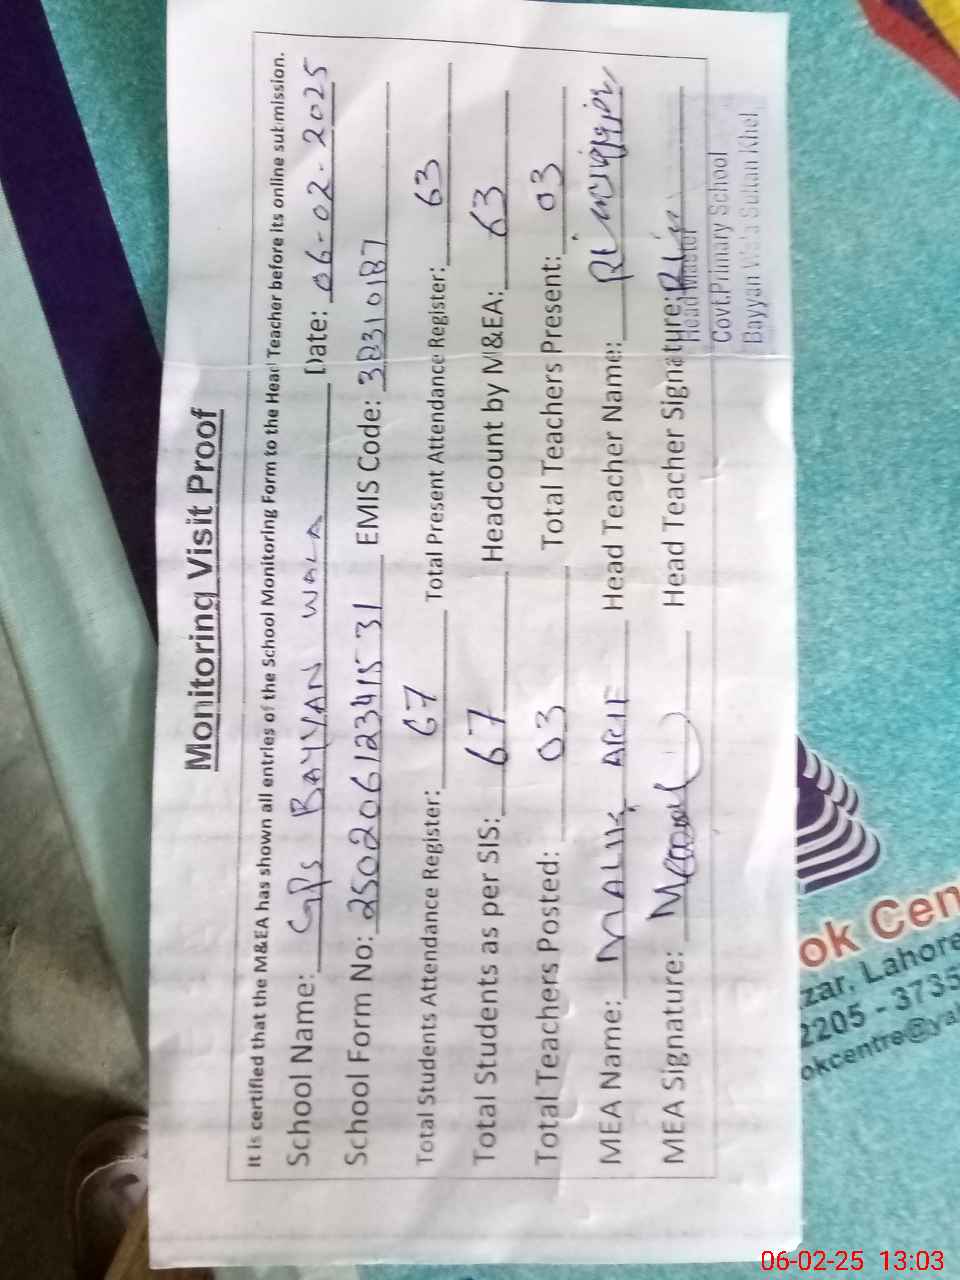 Monitoring Visit Proof
It is certified that the M&EA has shown all entries of the School Monitoring Form to the Head Teacher before its online submission.
School Name: GPS BAYYAN WALA Date: 06-02-2025
School Form No: 25020612341531 EMIS Code: 38310187
Total Students Attendance Register: 67 Total Present Attendance Register: 63
Total Students as per SIS: 67 Headcount by M&EA: 63
Total Teachers Posted: 03 Total Teachers Present: 03
MEA Name: MALIK ARIF Head Teacher Name:
MEA Signature: Head Teacher Signature:
Head Master
Govt.Primary School
Bayyan Wala Sultan Khel
ok Cen
zar, Lahore
2205 - 3735
okcentre@ya
06-02-25 13:03